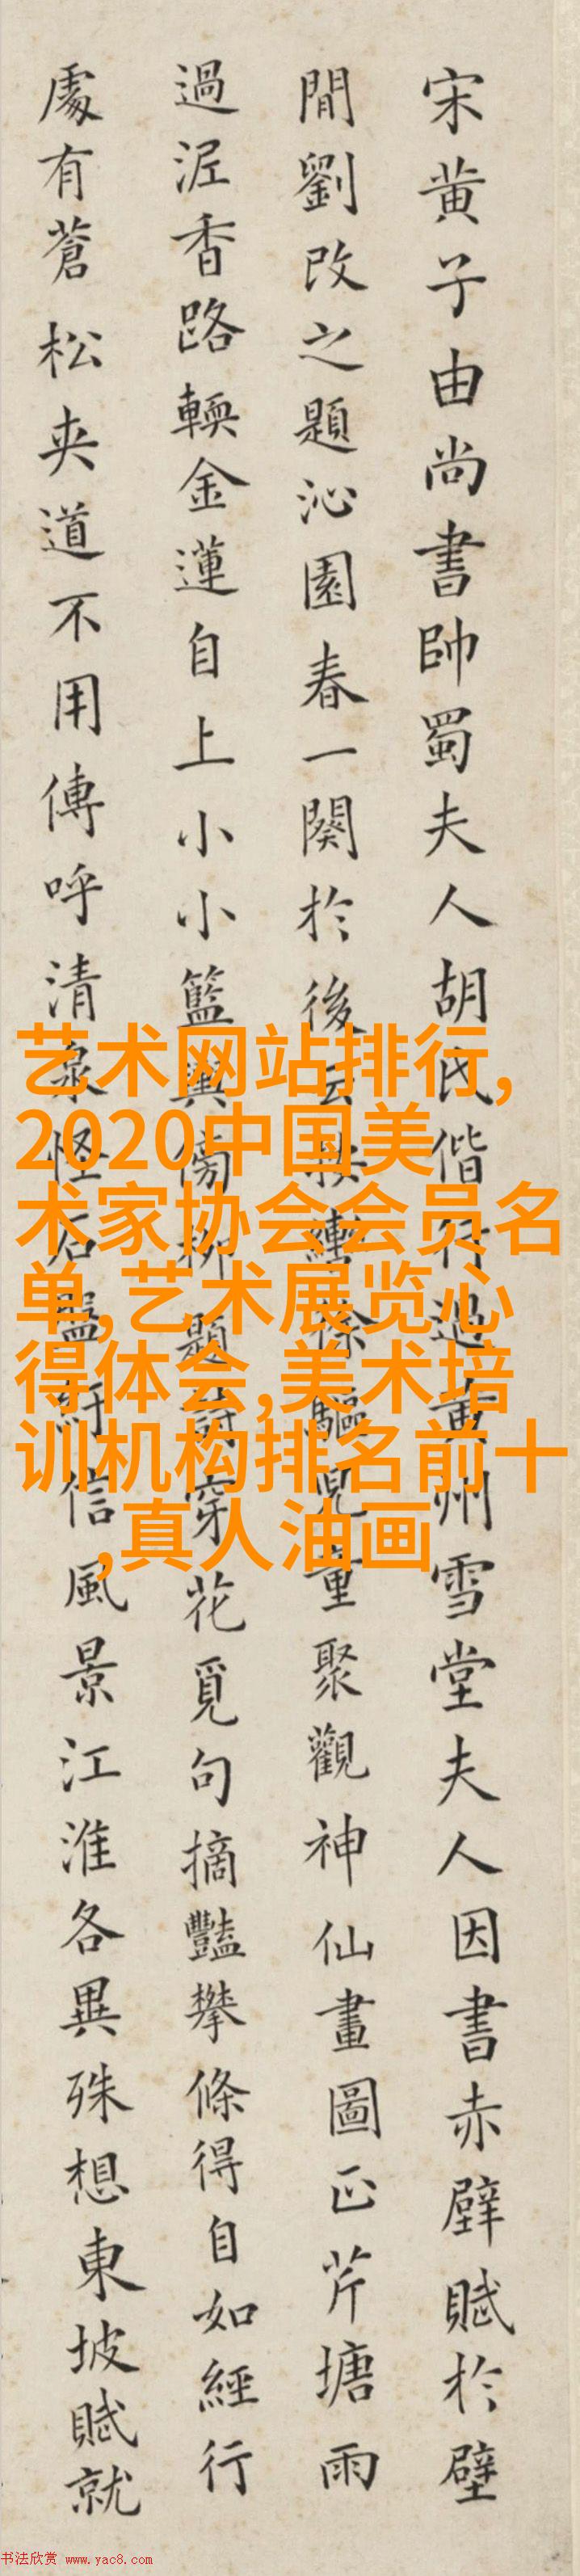 宋黄子由尚書帥蜀夫人胡氏偕行過黄州雪堂夫人因書赤壁賦於壁
間劉改之題沁園春一闋於後云按轡徐驅兒童聚觀神仙畫圖正芹塘雨
過泥香路輭金蓮自上小小籃輿傍柳題詩穿花覓句摘豔攀條得自如經行
處有蒼松夾道不用傳呼清泉怪石盤紆信風景江淮各異殊想東坡賦就
艺术网站排行,
2020中国美
术家协会会员名
单,艺术展览心
得体会,美术培
训机构排名前十
,真人油画
书法欣赏 www.yac8.com